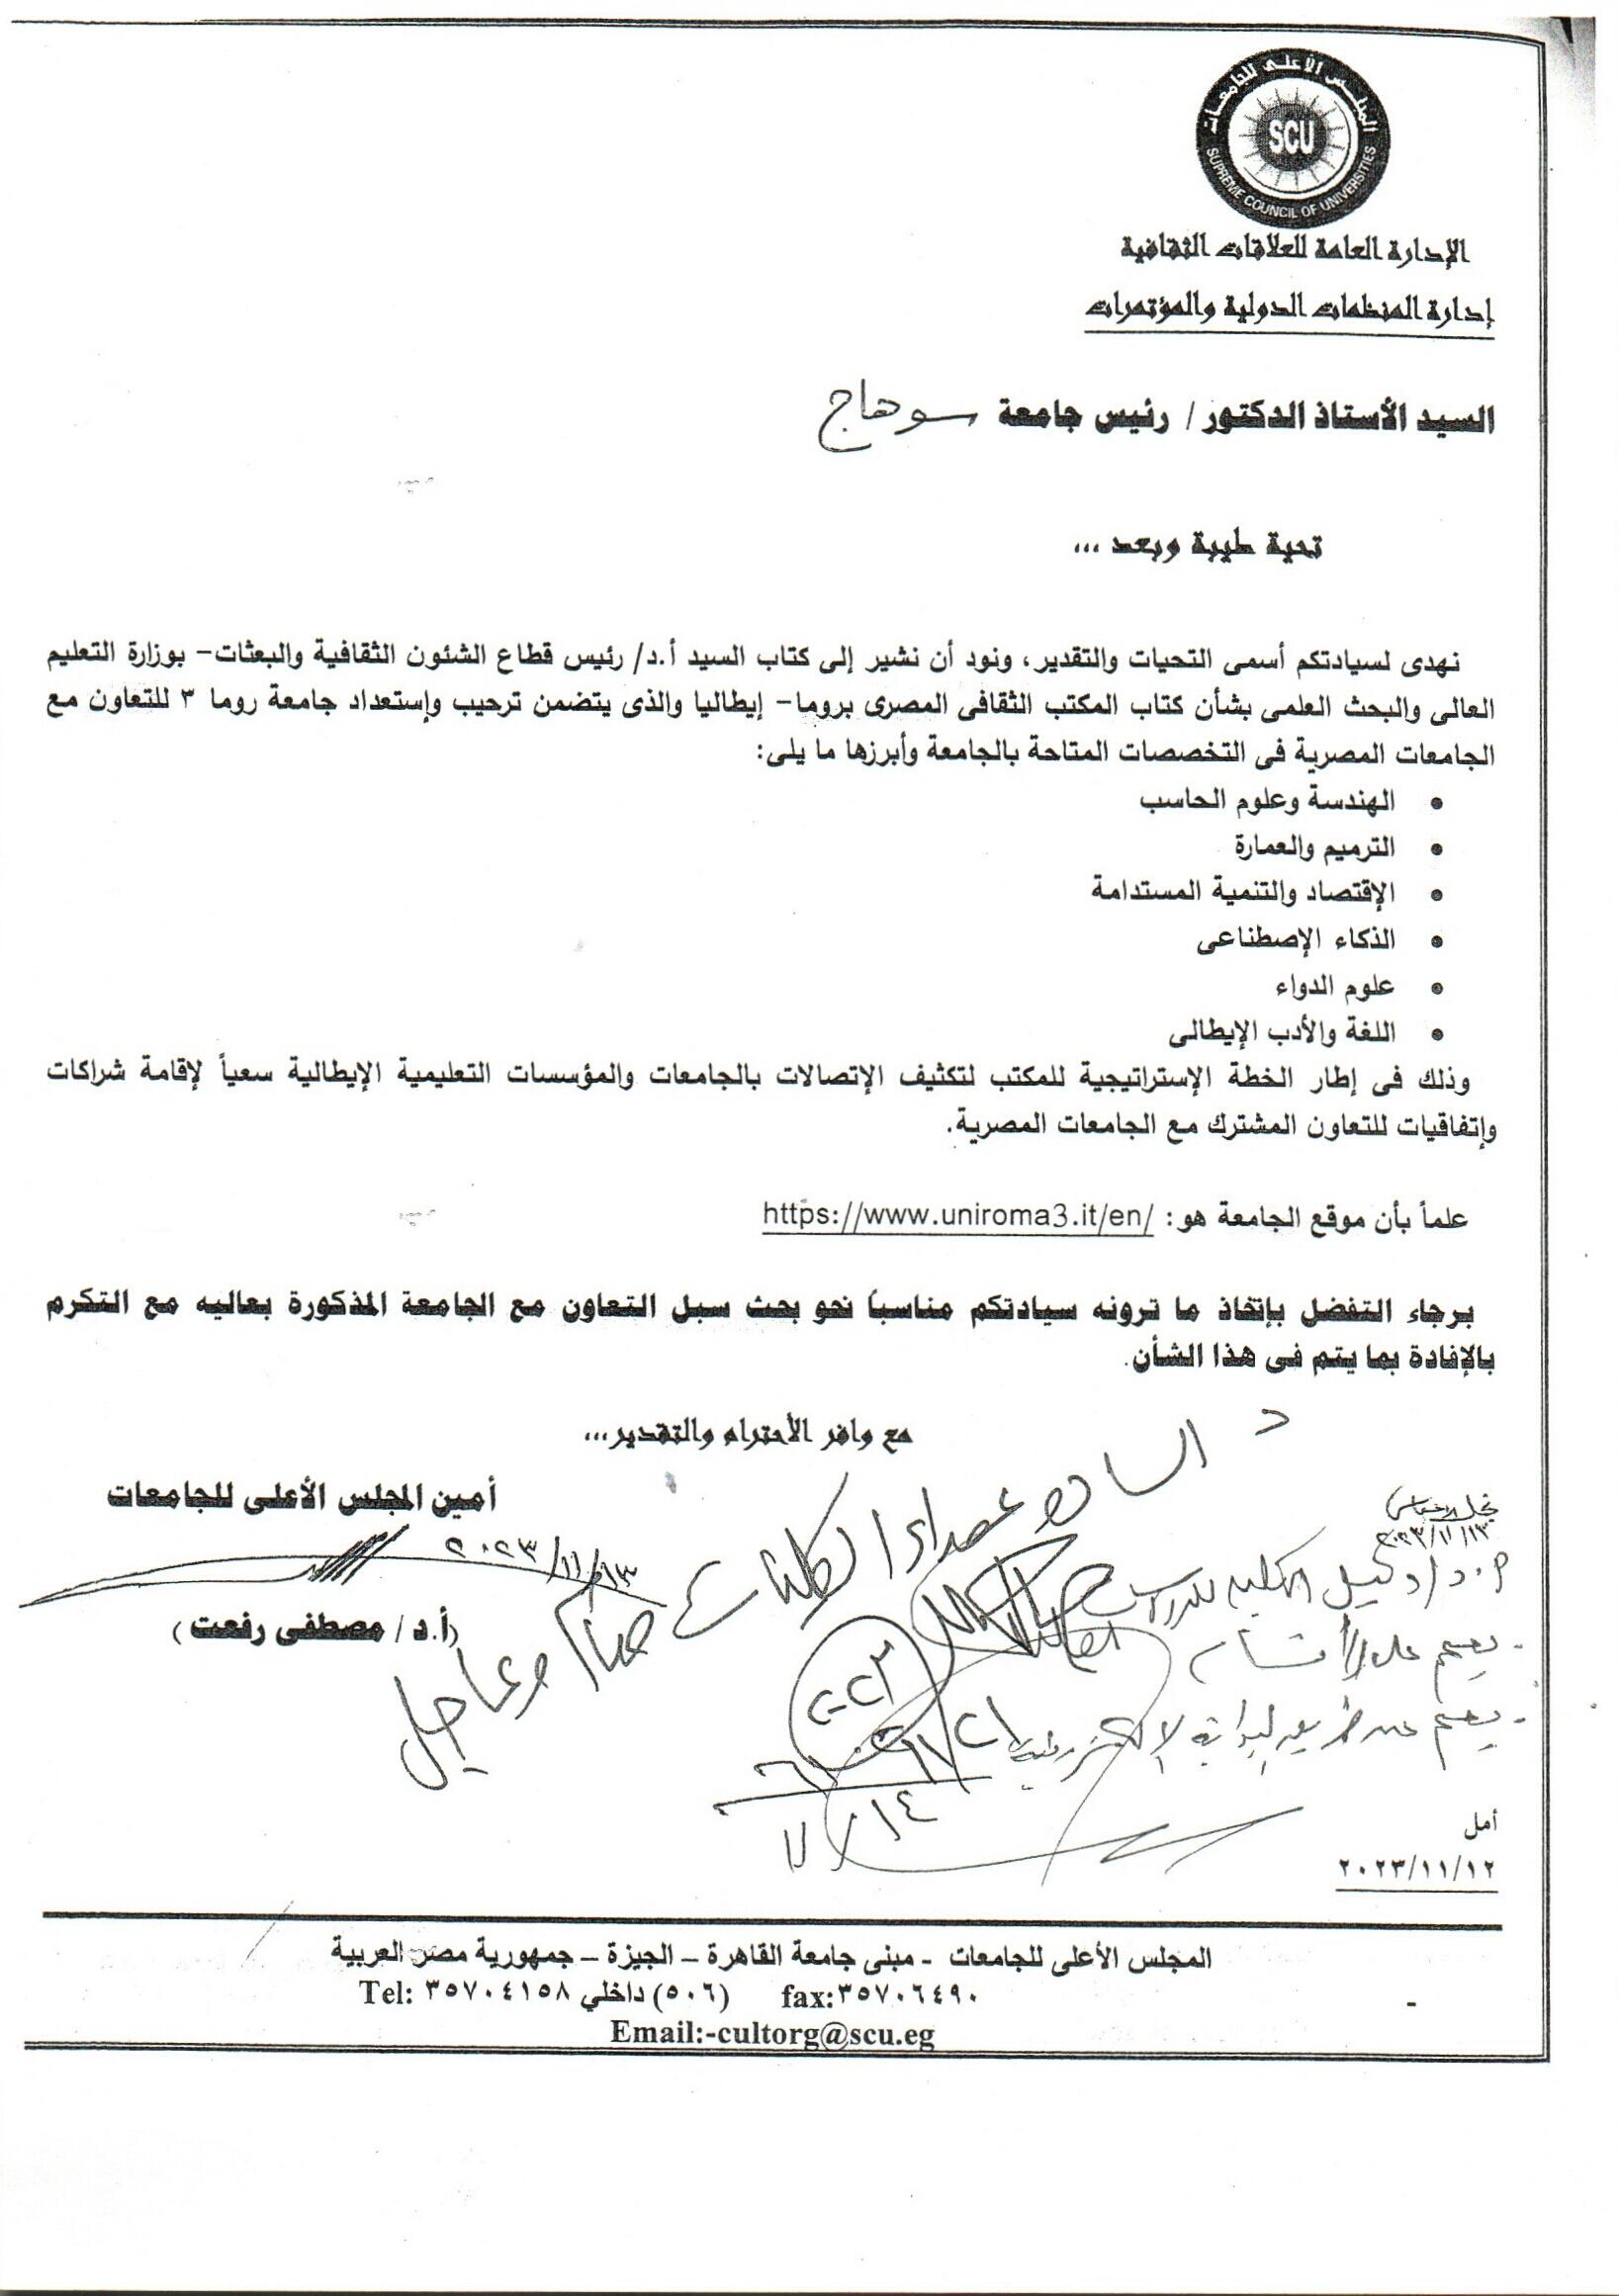 المجلس الأعلى للجامعات
SCU
SUPREME COUNCIL OF UNIVERSITIES
الإدارة العامة للعلاقات الثقافية
إدارة المنظمات الدولية والمؤتمرات
السيد الأستاذ الدكتور / رئيس جامعة سوهاج
تحية طيبة وبعد ...
نهدى لسيادتكم أسمى التحيات والتقدير، ونود أن نشير إلى كتاب السيد أ.د/ رئيس قطاع الشئون الثقافية والبعثات- بوزارة التعليم
العالى والبحث العلمى بشأن كتاب المكتب الثقافى المصرى بروما- إيطاليا والذى يتضمن ترحيب وإستعداد جامعة روما ٣ للتعاون مع
الجامعات المصرية فى التخصصات المتاحة بالجامعة وأبرزها ما يلى:
• الهندسة وعلوم الحاسب
• الترميم والعمارة
• الإقتصاد والتنمية المستدامة
• الذكاء الإصطناعى
• علوم الدواء
• اللغة والأدب الإيطالى
وذلك فى إطار الخطة الإستراتيجية للمكتب لتكثيف الإتصالات بالجامعات والمؤسسات التعليمية الإيطالية سعياً لإقامة شراكات
وإتفاقيات للتعاون المشترك مع الجامعات المصرية.
علماً بأن موقع الجامعة هو: https://www.uniroma3.it/en/
برجاء التفضل بإتخاذ ما ترونه سيادتكم مناسباً نحو بحث سبل التعاون مع الجامعة المذكورة بعاليه مع التكرم
بالإفادة بما يتم فى هذا الشأن.
مع وافر الأحترام والتقدير...
أمين المجلس الأعلى للجامعات
٢٠٢٣/١١/١٣
(أ.د / مصطفى رفعت)
السادة عمداء الكليات
هام وعاجل
٢٠٢٣/١١/١٣
أ.د/ وكيل الكلية للدراسات العليا
- يعمم على الأقسام
- يعمم عن طريق البوابة الإلكترونية
١١/١٤
أمل
٢٠٢٣/١١/١٢
المجلس الأعلى للجامعات - مبنى جامعة القاهرة – الجيزة – جمهورية مصر العربية
Tel: ٣٥٧٠٤١٥٨ داخلي (٥٠٦) fax:٣٥٧٠٦٤٩٠
Email:-cultorg@scu.eg